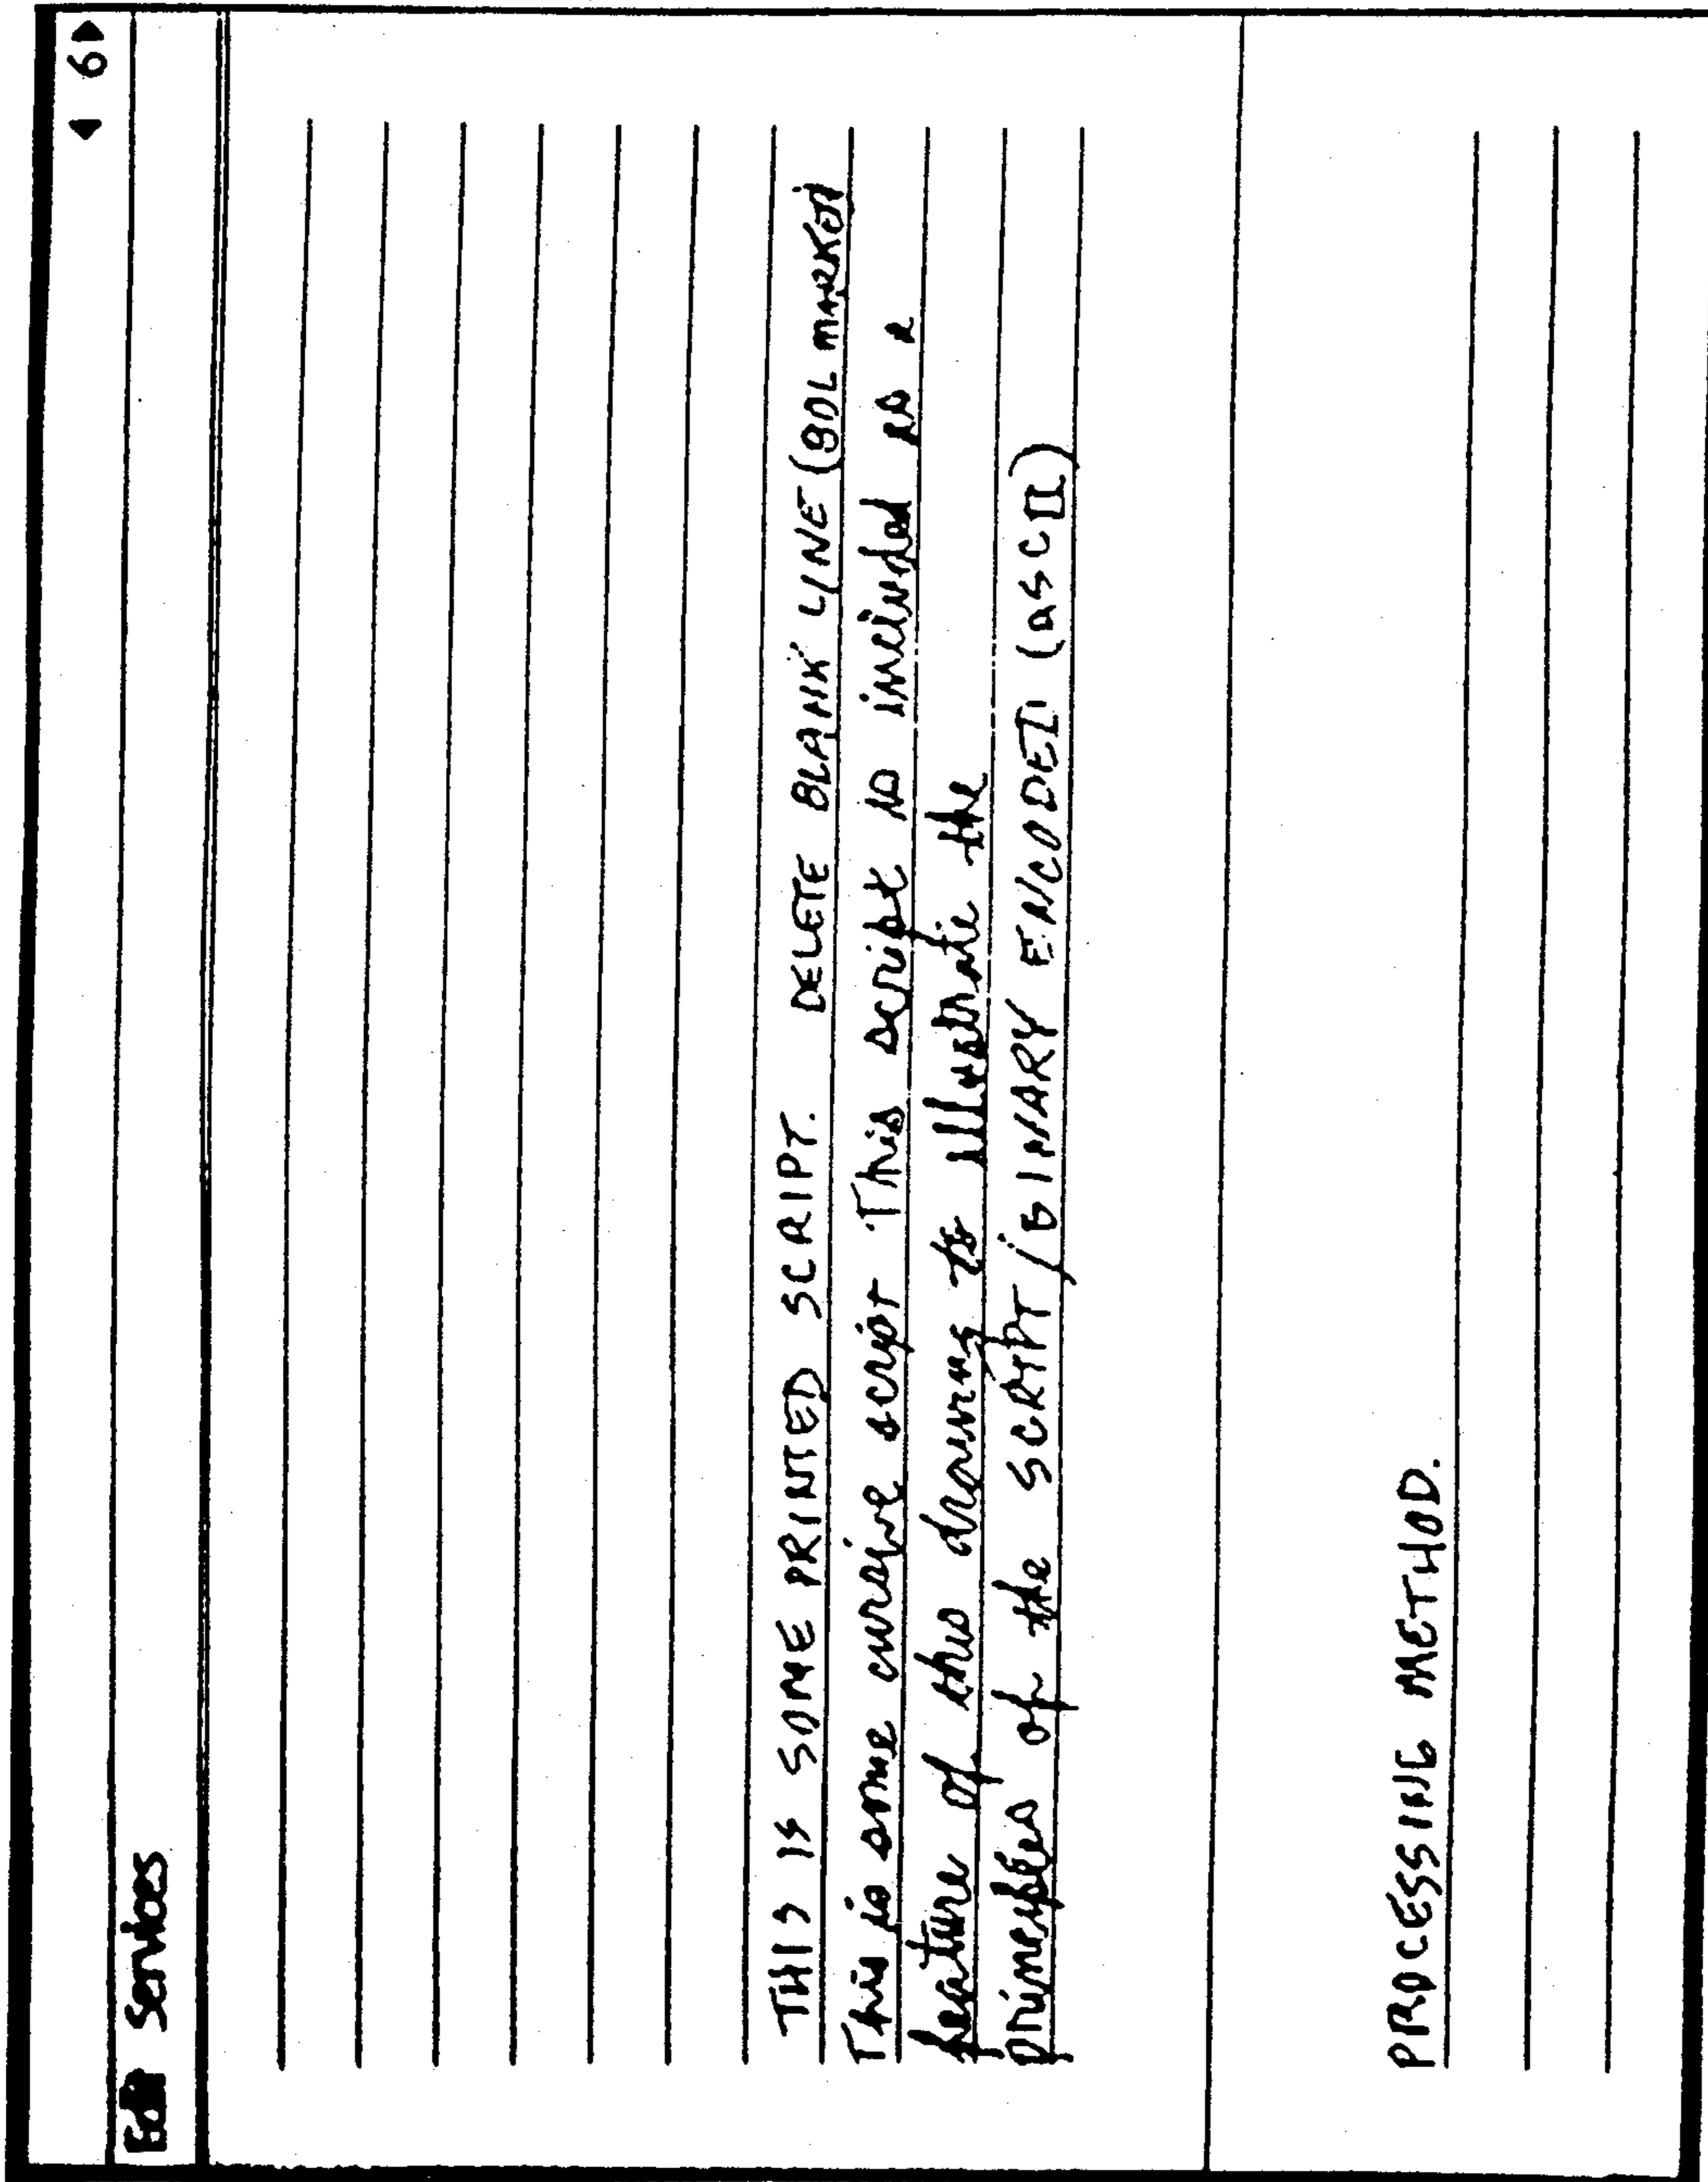 ◀ 6 ▶
Edit Services
THIS IS SOME PRINTED SCRIPT. DELETE BLANK LINE (BOL marked
This is some cursive script This script is included as a
feature of this drawing to illustrate the
principles of the SCRIPT/BINARY ENCODED (ASCII)
PROCESSING METHOD.